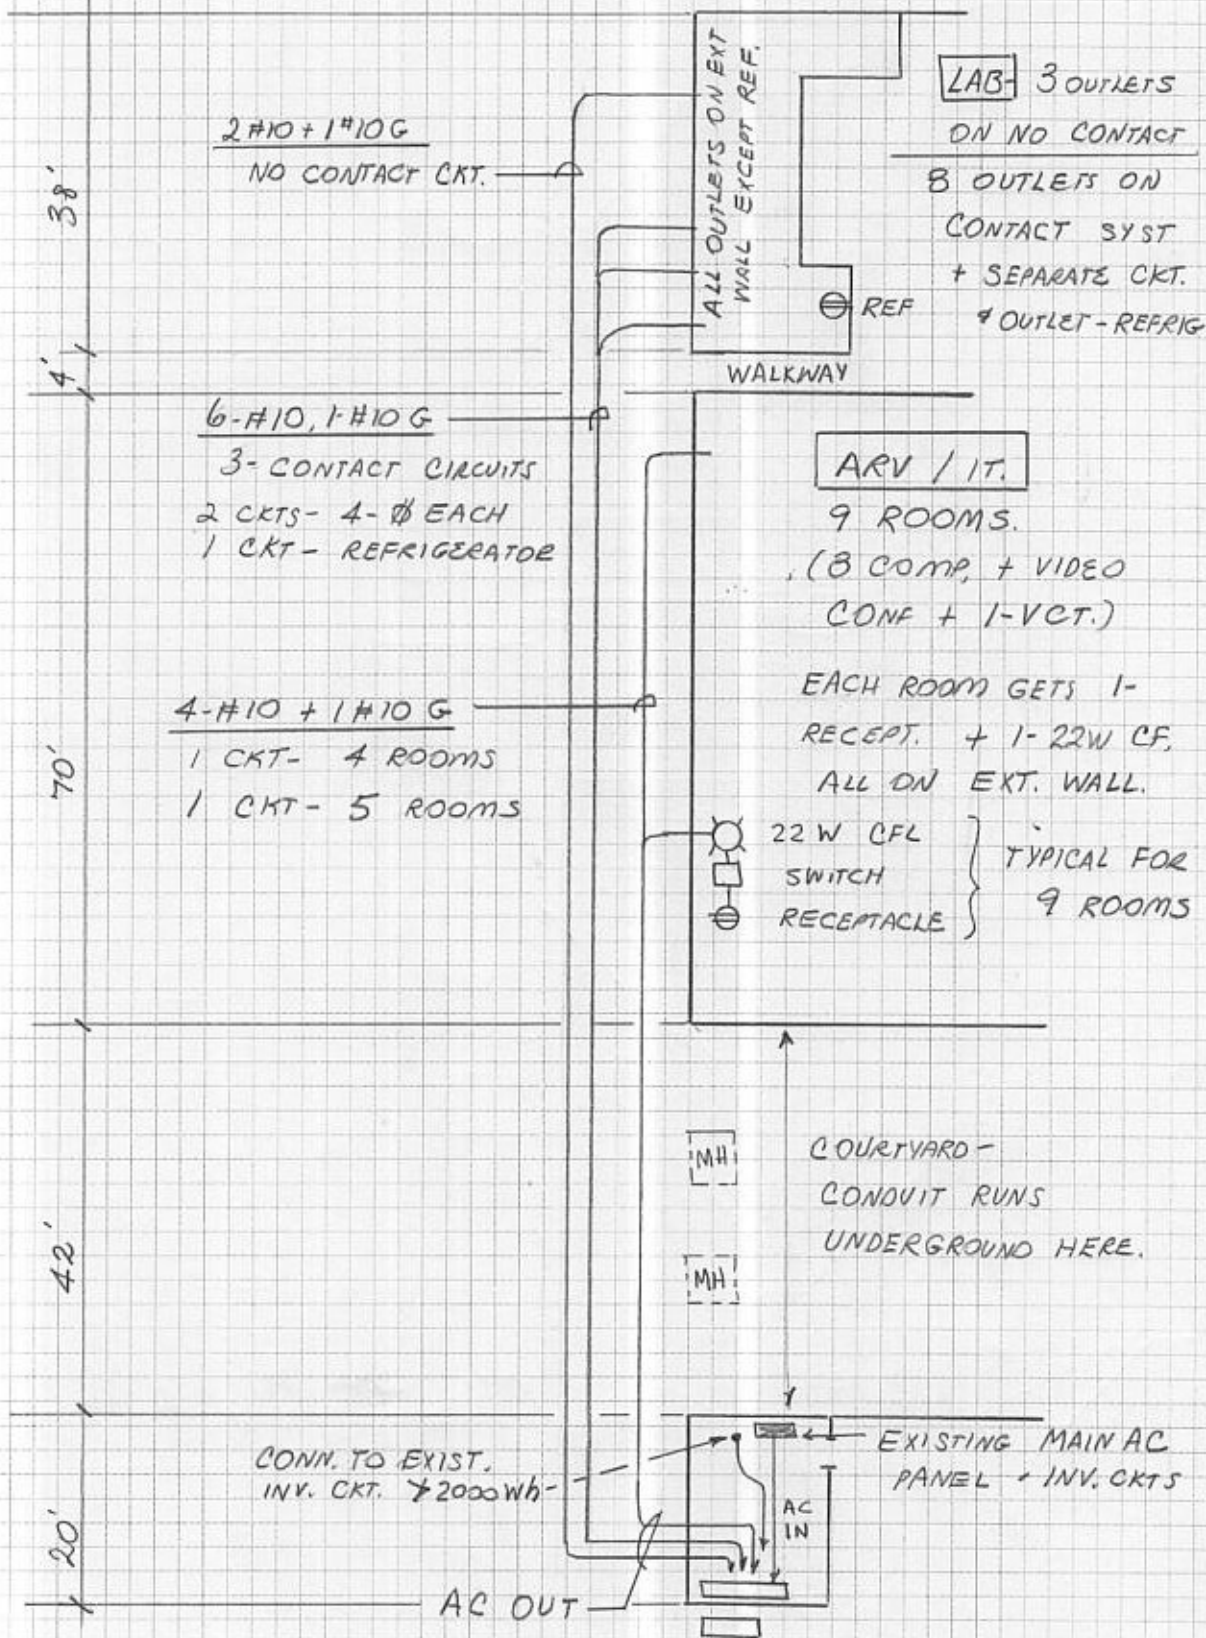 38'
4'
70'
42'
20'
2 #10 + 1 #10 G
NO CONTACT CKT.
ALL OUTLETS ON EXT
WALL EXCEPT REF.
LAB- 3 OUTLETS
ON NO CONTACT
8 OUTLETS ON
CONTACT SYST
+ SEPARATE CKT.
& OUTLET - REFRIG
REF
WALKWAY
6-#10, 1-#10 G
3- CONTACT CIRCUITS
2 CKTS- 4- EACH
1 CKT - REFRIGERATOR
ARV / IT.
9 ROOMS.
(8 COMP, + VIDEO
CONF + 1-VCT.)
EACH ROOM GETS 1-
RECEPT. + 1- 22W CF,
ALL ON EXT. WALL.
4-#10 + 1 #10 G
1 CKT- 4 ROOMS
1 CKT - 5 ROOMS
22 W CFL
SWITCH
RECEPTACLE
TYPICAL FOR
9 ROOMS
MH
MH
COURTYARD -
CONDUIT RUNS
UNDERGROUND HERE.
CONN. TO EXIST.
INV. CKT. 2000 Wh-
EXISTING MAIN AC
PANEL - INV. CKTS
AC
IN
AC OUT